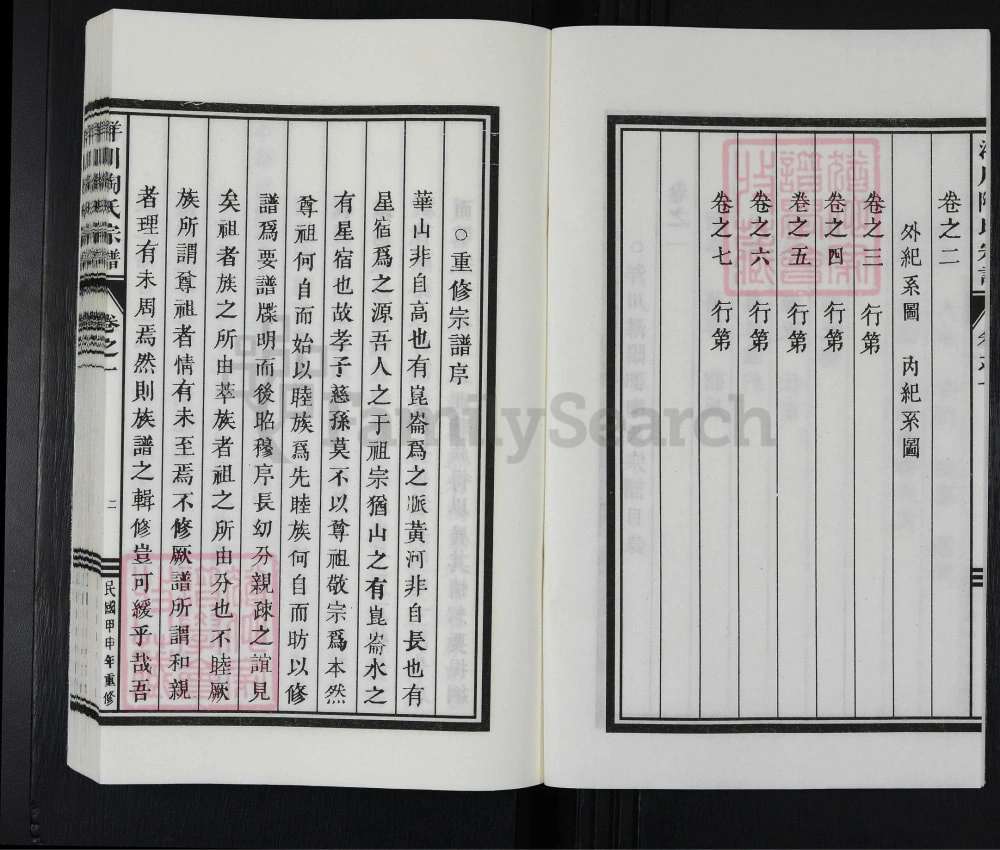 卷之二
外紀系圖 內紀系圖
卷之三 行第
卷之四 行第
卷之五 行第
卷之六 行第
卷之七 行第
○重修宗譜序
華山非自高也有崑崙爲之脈黃河非自長也有
星宿爲之源吾人之于祖宗猶山之有崑崙水之
有星宿也故孝子慈孫莫不以尊祖敬宗爲本然
尊祖何自而始以睦族爲先睦族何自而昉以修
譜爲要譜牒明而後昭穆序長幼分親疎之誼見
矣祖者族之所由萃族者祖之所由分也不睦厥
族所謂尊祖者情有未至焉不修厥譜所謂和親
者理有未周焉然則族譜之輯修豈可緩乎哉吾
氏宗譜
卷之一
二
民國甲申年重修
FamilySearch